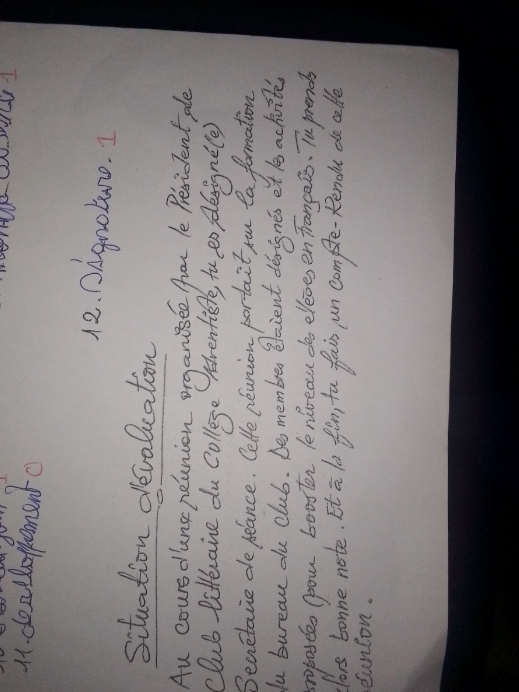 11. developpement 0
12. Signature. 1
Situation d'évaluation
Au cours d'une réunion organisée par le Président de
Club littéraire du Collège Adventiste, tu es désigné(e)
Secrétaire de séance. Cette réunion portait sur la formation
du bureau du Club. Des membres étaient désignés et les activités
proposées pour booster le niveau des élèves en Français. Tu prends
alors bonne note. Et à la fin, tu fais, un compte-Rendu de cette
réunion.